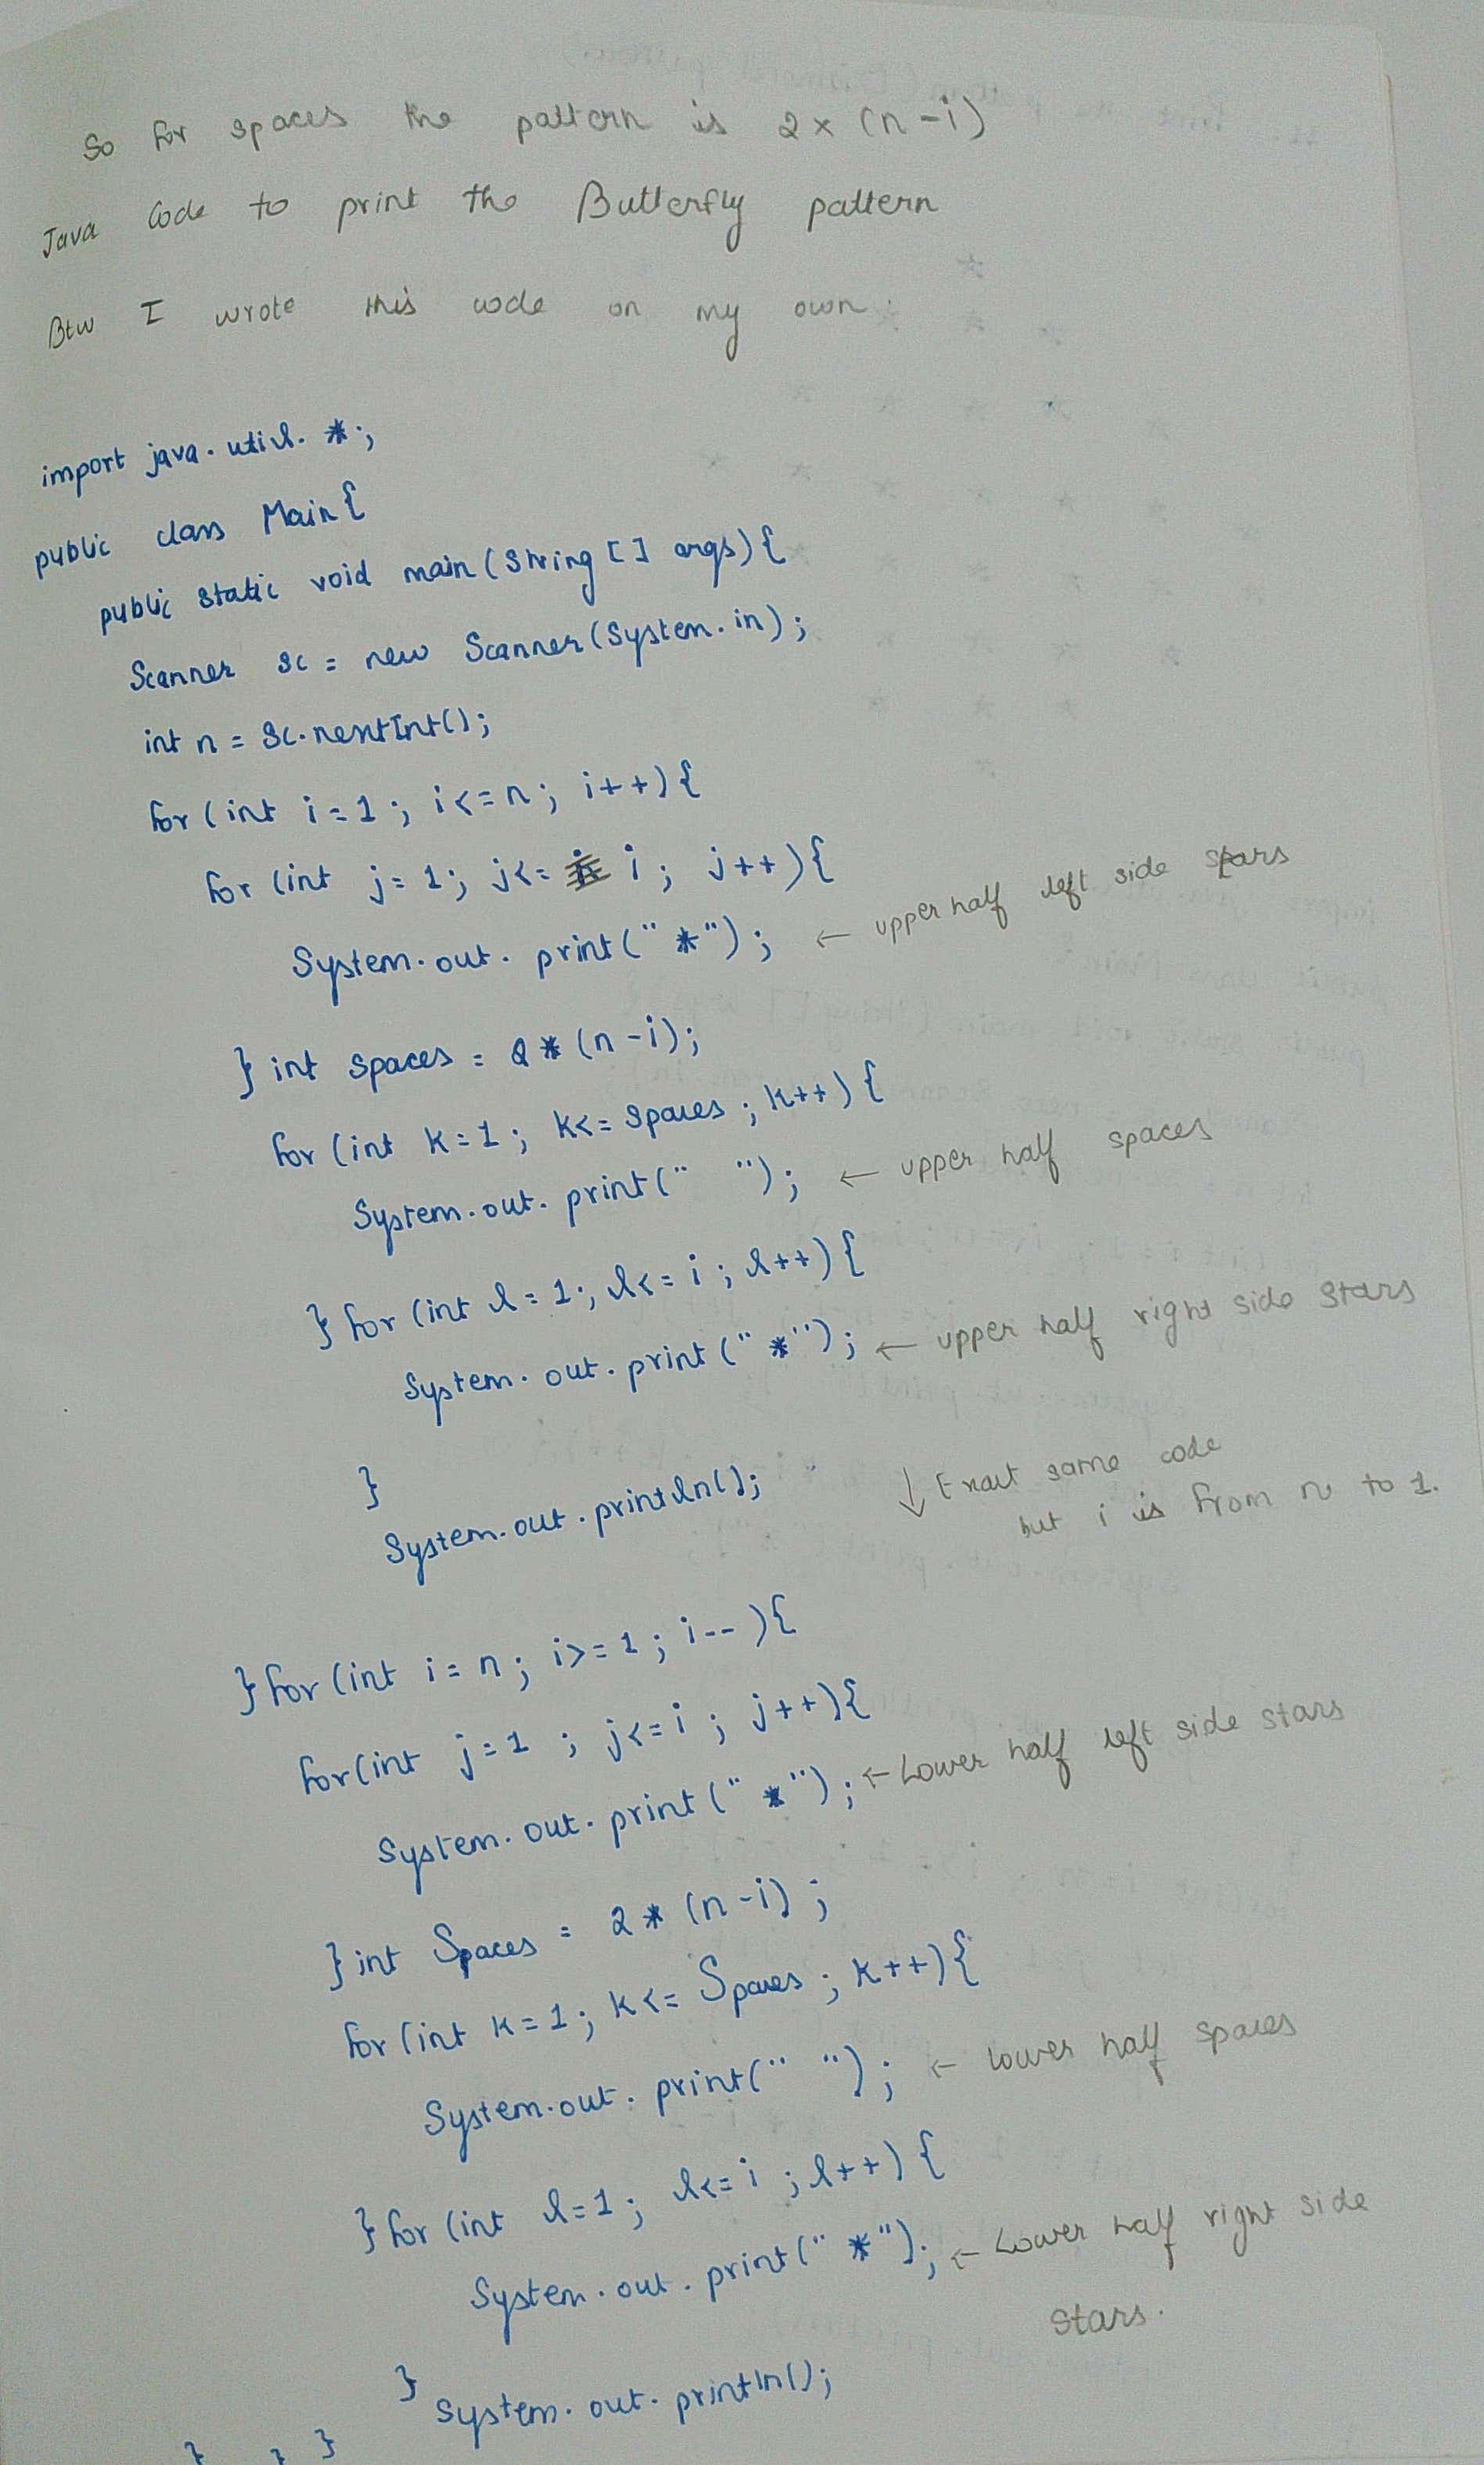 So for spaces the pattern is 2 x (n-i)
Java Code to print the Butterfly pattern
Btw I wrote this code on my own.
import java.util.*;
public class Main{
public static void main(String [] args){
Scanner sc = new Scanner(System.in);
int n = sc.nextInt();
for (int i = 1; i<=n; i++){
for (int j = 1; j<= i; j++){
System.out.print("*"); ← upper half left side stars
} int spaces = 2 * (n-i);
for (int k = 1; k<= spaces; k++){
System.out.print(" "); ← upper half spaces
} for (int l = 1; l<= i; l++){
System.out.print("*"); ← upper half right side stars
}
System.out.println();
↓ Exact same code
but i is from n to 1.
} for (int i = n; i>=1; i--){
for(int j = 1; j<=i; j++){
System.out.print("*"); ← Lower half left side stars
} int Spaces = 2 * (n-i);
for (int k = 1; k<= Spaces; k++){
System.out.print(" "); ← Lower half spaces
} for (int l = 1; l<= i; l++){
System.out.print("*"); ← Lower half right side
stars.
}
System.out.println();
} } }